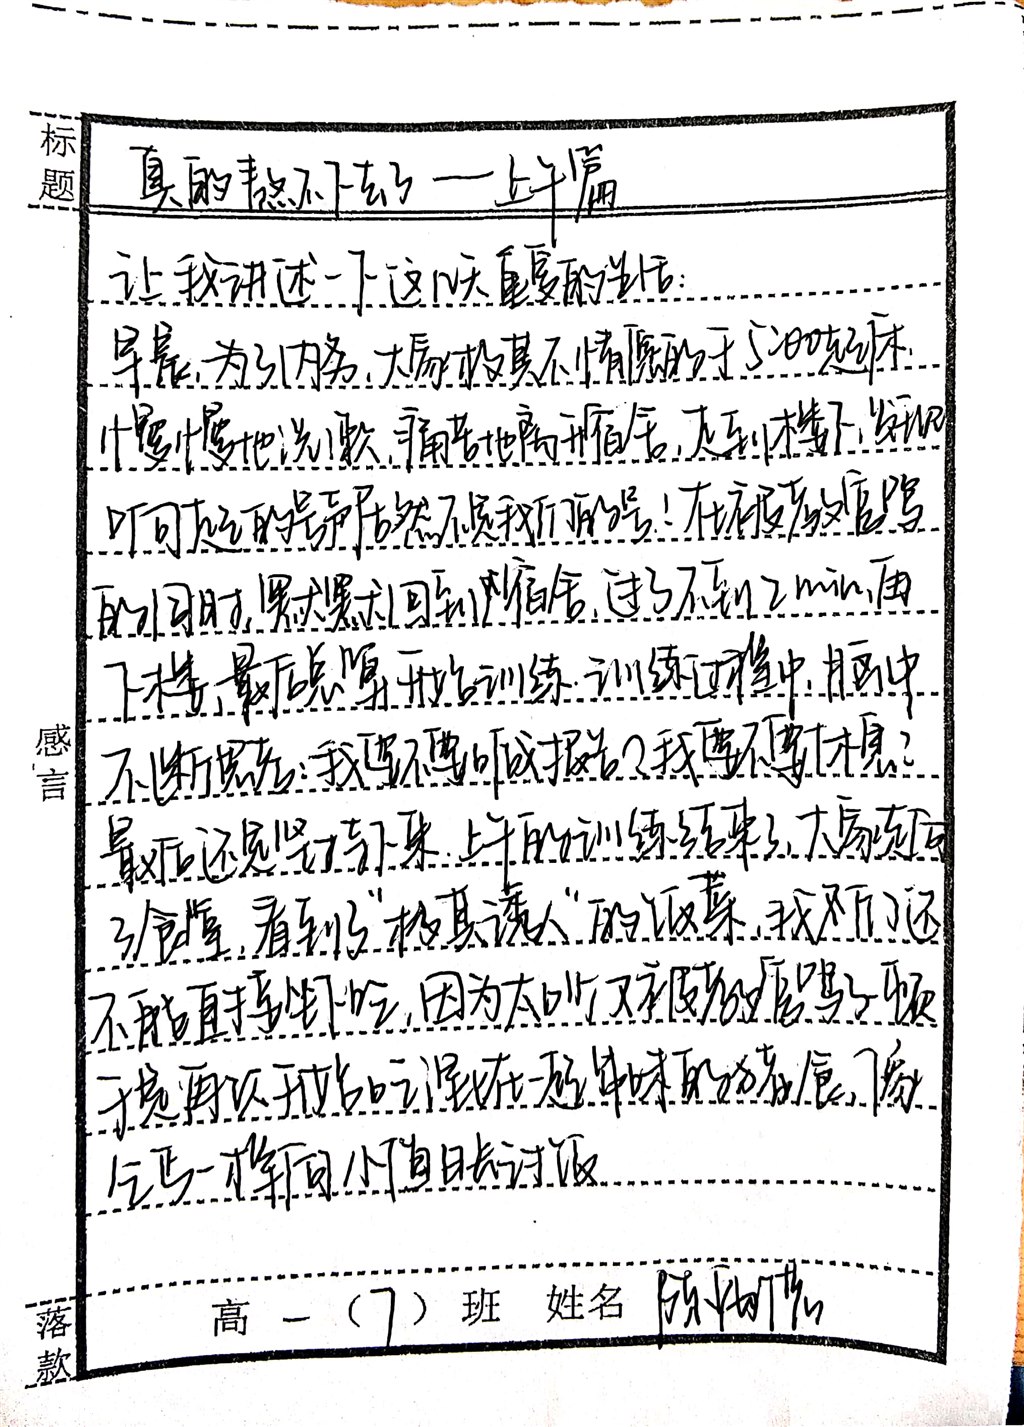 标题
真的熬不下去了——上午篇
让我讲述一下这几天重要的生活：
早晨，为了内务，大家极其不情愿的于5:00起床，
慢慢地洗漱，痛苦地离开宿舍，走到楼下，发现
叫起的号声居然不是我们的号！在被教官骂
的同时，默默回到宿舍，过了不到2min，再
下楼，最后总算开始训练。训练过程中，脑中
不断思考：我要不要叫或报告？我要不要休息？
感言
最后还是坚持下来。上午的训练结束了，大家走向
了食堂，看到了“极其诱人”的饭菜，我们还
不能直接坐下吃，因为太吵又被教官骂了一顿
于是再次开始吃混在一起串味的套餐，像
乞丐一样向小值日长讨饭
落款
高一（7）班 姓名 陈